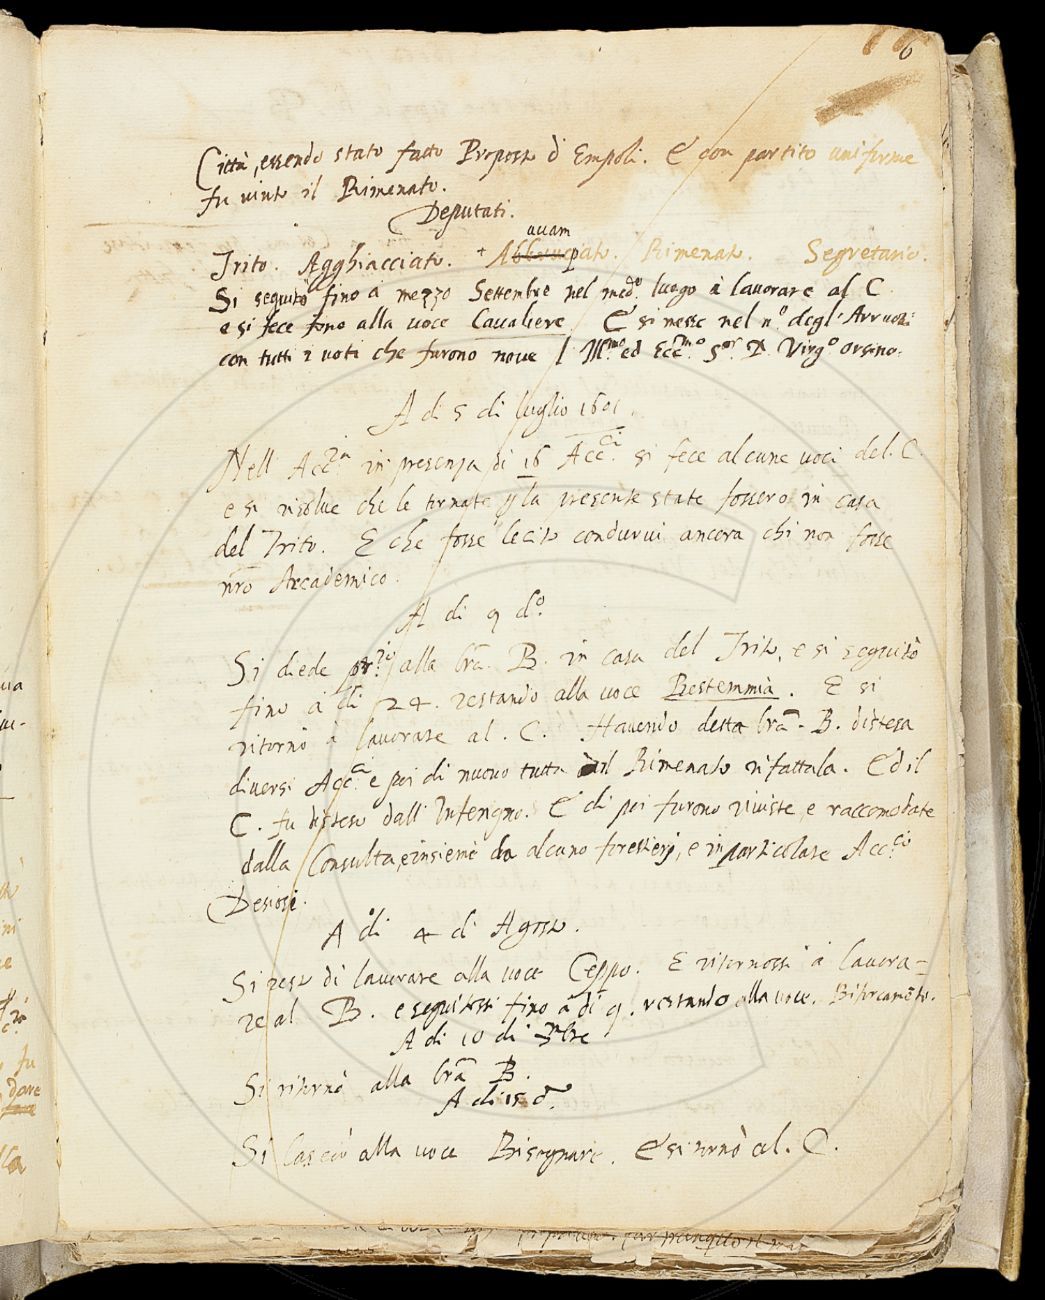 6
Città, essendo stato fatto Proposto d Empoli. E con partito uniforme
fu vinto il Rimenato.
Deputati.
avam
Trito. Agghiacciato. + Rimenato. Segretario.
Si seguitò fino à mezzo Settembre nel med.o luogo à lavorare al C
e si fece fino alla voce Cavaliere. E si messe nel n.o degl'
con tutti i voti che furono nove l Ill.mo ed Ecc.mo S.or D. Virg.o Orsino.
A dì 5 di luglio 1601.
Nell Acc.a in presenza di 16 Acc.ci si fece alcune voci del. C.
e si risolve che le tornate la presente state fossero in casa
del Trito. E che fosse lecito condurvi ancora chi non fosse
nro Accademico.
A dì 9 d.o
Si diede alla lrã B. in casa del Trito, e si seguitò
fino à dì 24. restando alla voce Bestemmia. E si
ritornò à lavorare al. C. Havendo detta lrã. B. distesa
diversi Acc.ci e poi di nuovo tutta il Rimenato rifattala. Ed il
C. fu disteso dall' Inferigno. E di poi furono riviste, e raccomodate
dalla Consulta, e insieme da alcuno forestieri, e in particolare Acc.ci
Desiosi.
A dì 4 di Agosto.
Si restò di lavorare alla voce Ceppo. E ritornossi à lavora=
re al B. e seguitossi fino à dì 9. restando alla voce. Biforcamẽto.
A dì 10 di
Si ritornò alla lrã B.
A dì 15 d.o
Si lasciò alla voce Bisognare. E si tornò al. C.